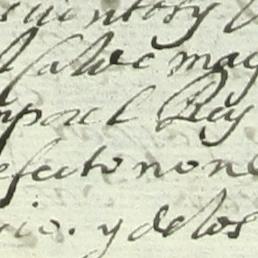 inventory
salve mag
nporel Rey
efecto none
rio. y de los